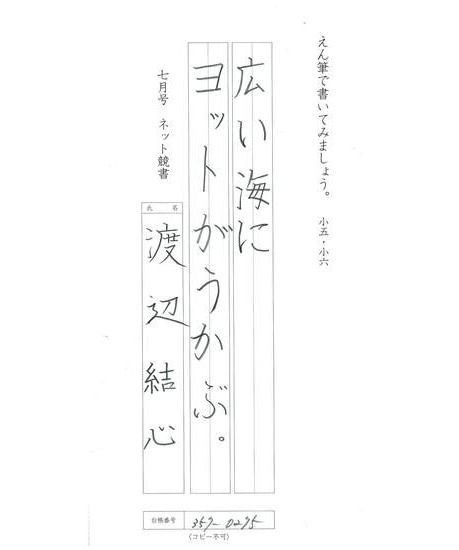 えん筆で書いてみましょう。　小五・小六
広い海に
ヨットがうかぶ。
七月号　ネット競書
氏名
渡辺結心
台帳番号
357-0295
(コピー不可)